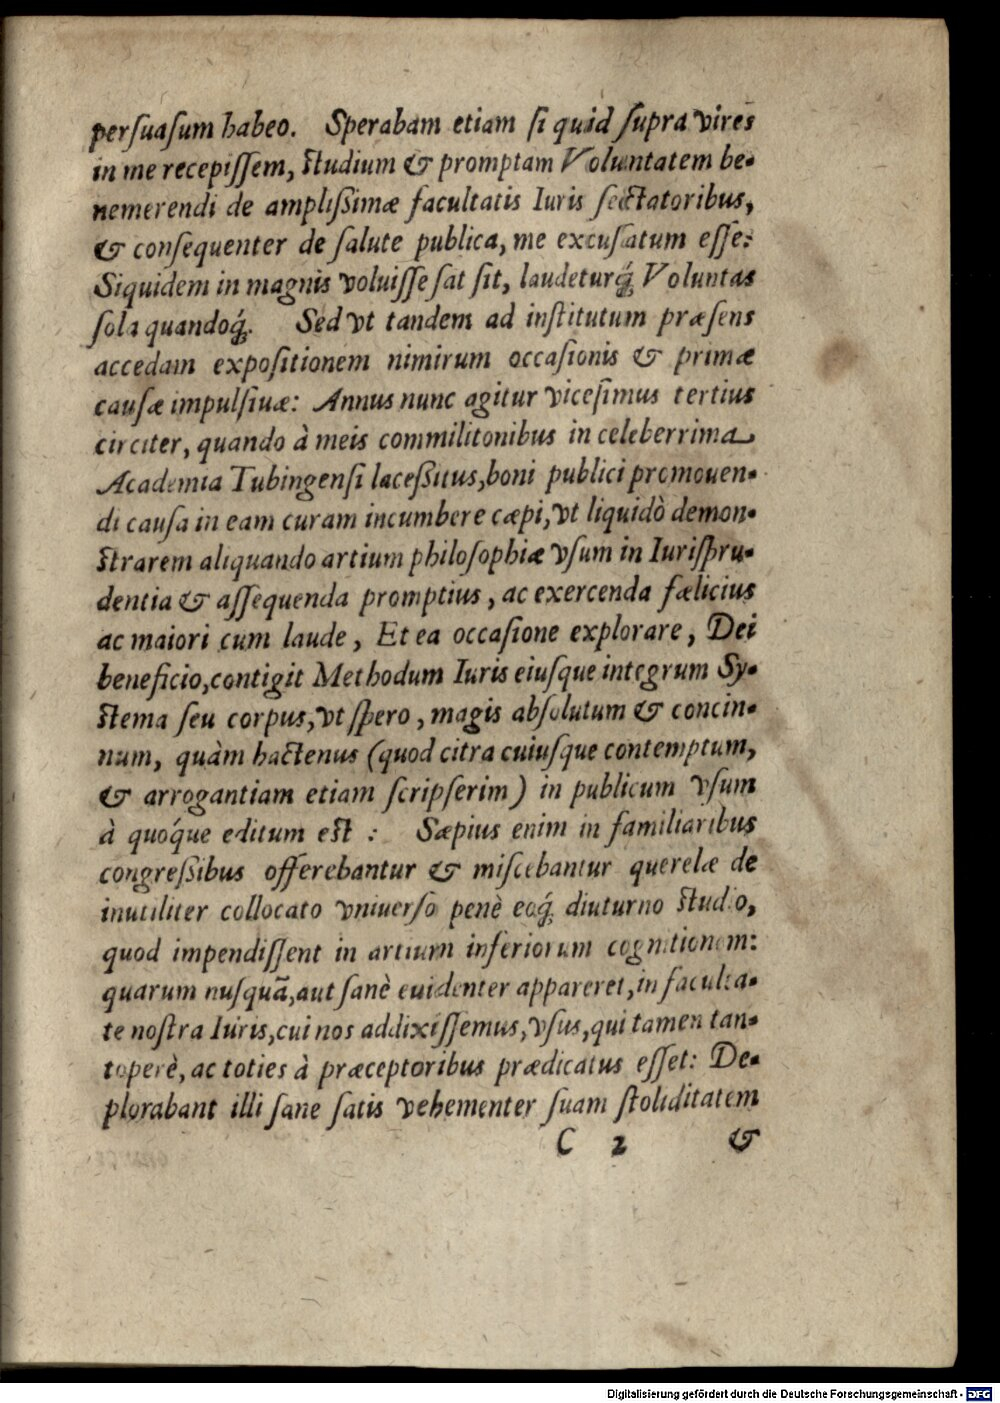 perſuaſum habeo. Sperabam etiam ſi quid ſupra vires
in me recepiſſem, ſtudium & promptam Voluntatem be-
nemerendi de ampliſſimæ facultatis Iuris ſectatoribus,
& conſequenter de ſalute publica, me excuſatum eſſe:
Siquidem in magnis voluiſſe ſat ſit, laudeturq́; Voluntas
ſola quandoq́;. Sed vt tandem ad inſtitutum præſens
accedam expoſitionem nimirum occaſionis & primæ
cauſæ impulſiuæ: Annus nunc agitur viceſimus tertius
circiter, quando à meis commilitonibus in celeberrima
Academia Tubingenſi laceſſitus, boni publici promouen-
di cauſa in eam curam incumbere cæpi, vt liquidò demon-
ſtrarem aliquando artium philoſophiæ vſum in Iuriſpru-
dentia & aſſequenda promptius, ac exercenda fælicius
ac maiori cum laude, Et ea occaſione explorare, Dei
beneficio, contigit Methodum Iuris eiuſque integrum Sy-
ſtema ſeu corpus, vt ſpero, magis abſolutum & concin-
num, quàm hactenus (quod citra cuiuſque contemptum,
& arrogantiam etiam ſcripſerim) in publicum vſum
à quoq́ue editum eſt : Sæpius enim in familiaribus
congreſſibus offerebantur & miſcebantur querelæ de
inutiliter collocato vniuerſo penè eoq́; diuturno ſtudio,
quod impendiſſent in artium inferiorum cognitionem:
quarum nuſquã, aut ſanè euidenter appareret, in faculta-
te noſtra Iuris, cui nos addixiſſemus, vſus, qui tamen tan-
toperè, ac toties à præceptoribus prædicatus eſſet: De-
plorabant illi ſane ſatis vehementer ſuam ſtoliditatem
C 2 &
Digitalisierung gefördert durch die Deutsche Forschungsgemeinschaft - DFG